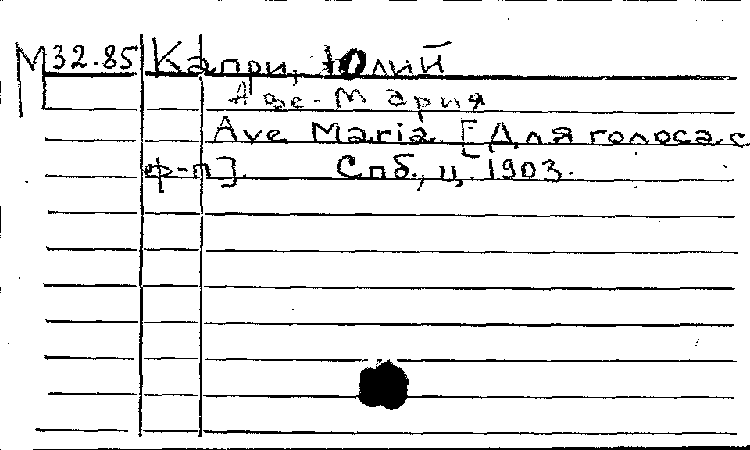 М 32.85 Капри, Юлий
Аве-Мария
Ave Maria [Для голоса с
ф-п]. Спб., ц. 1903.